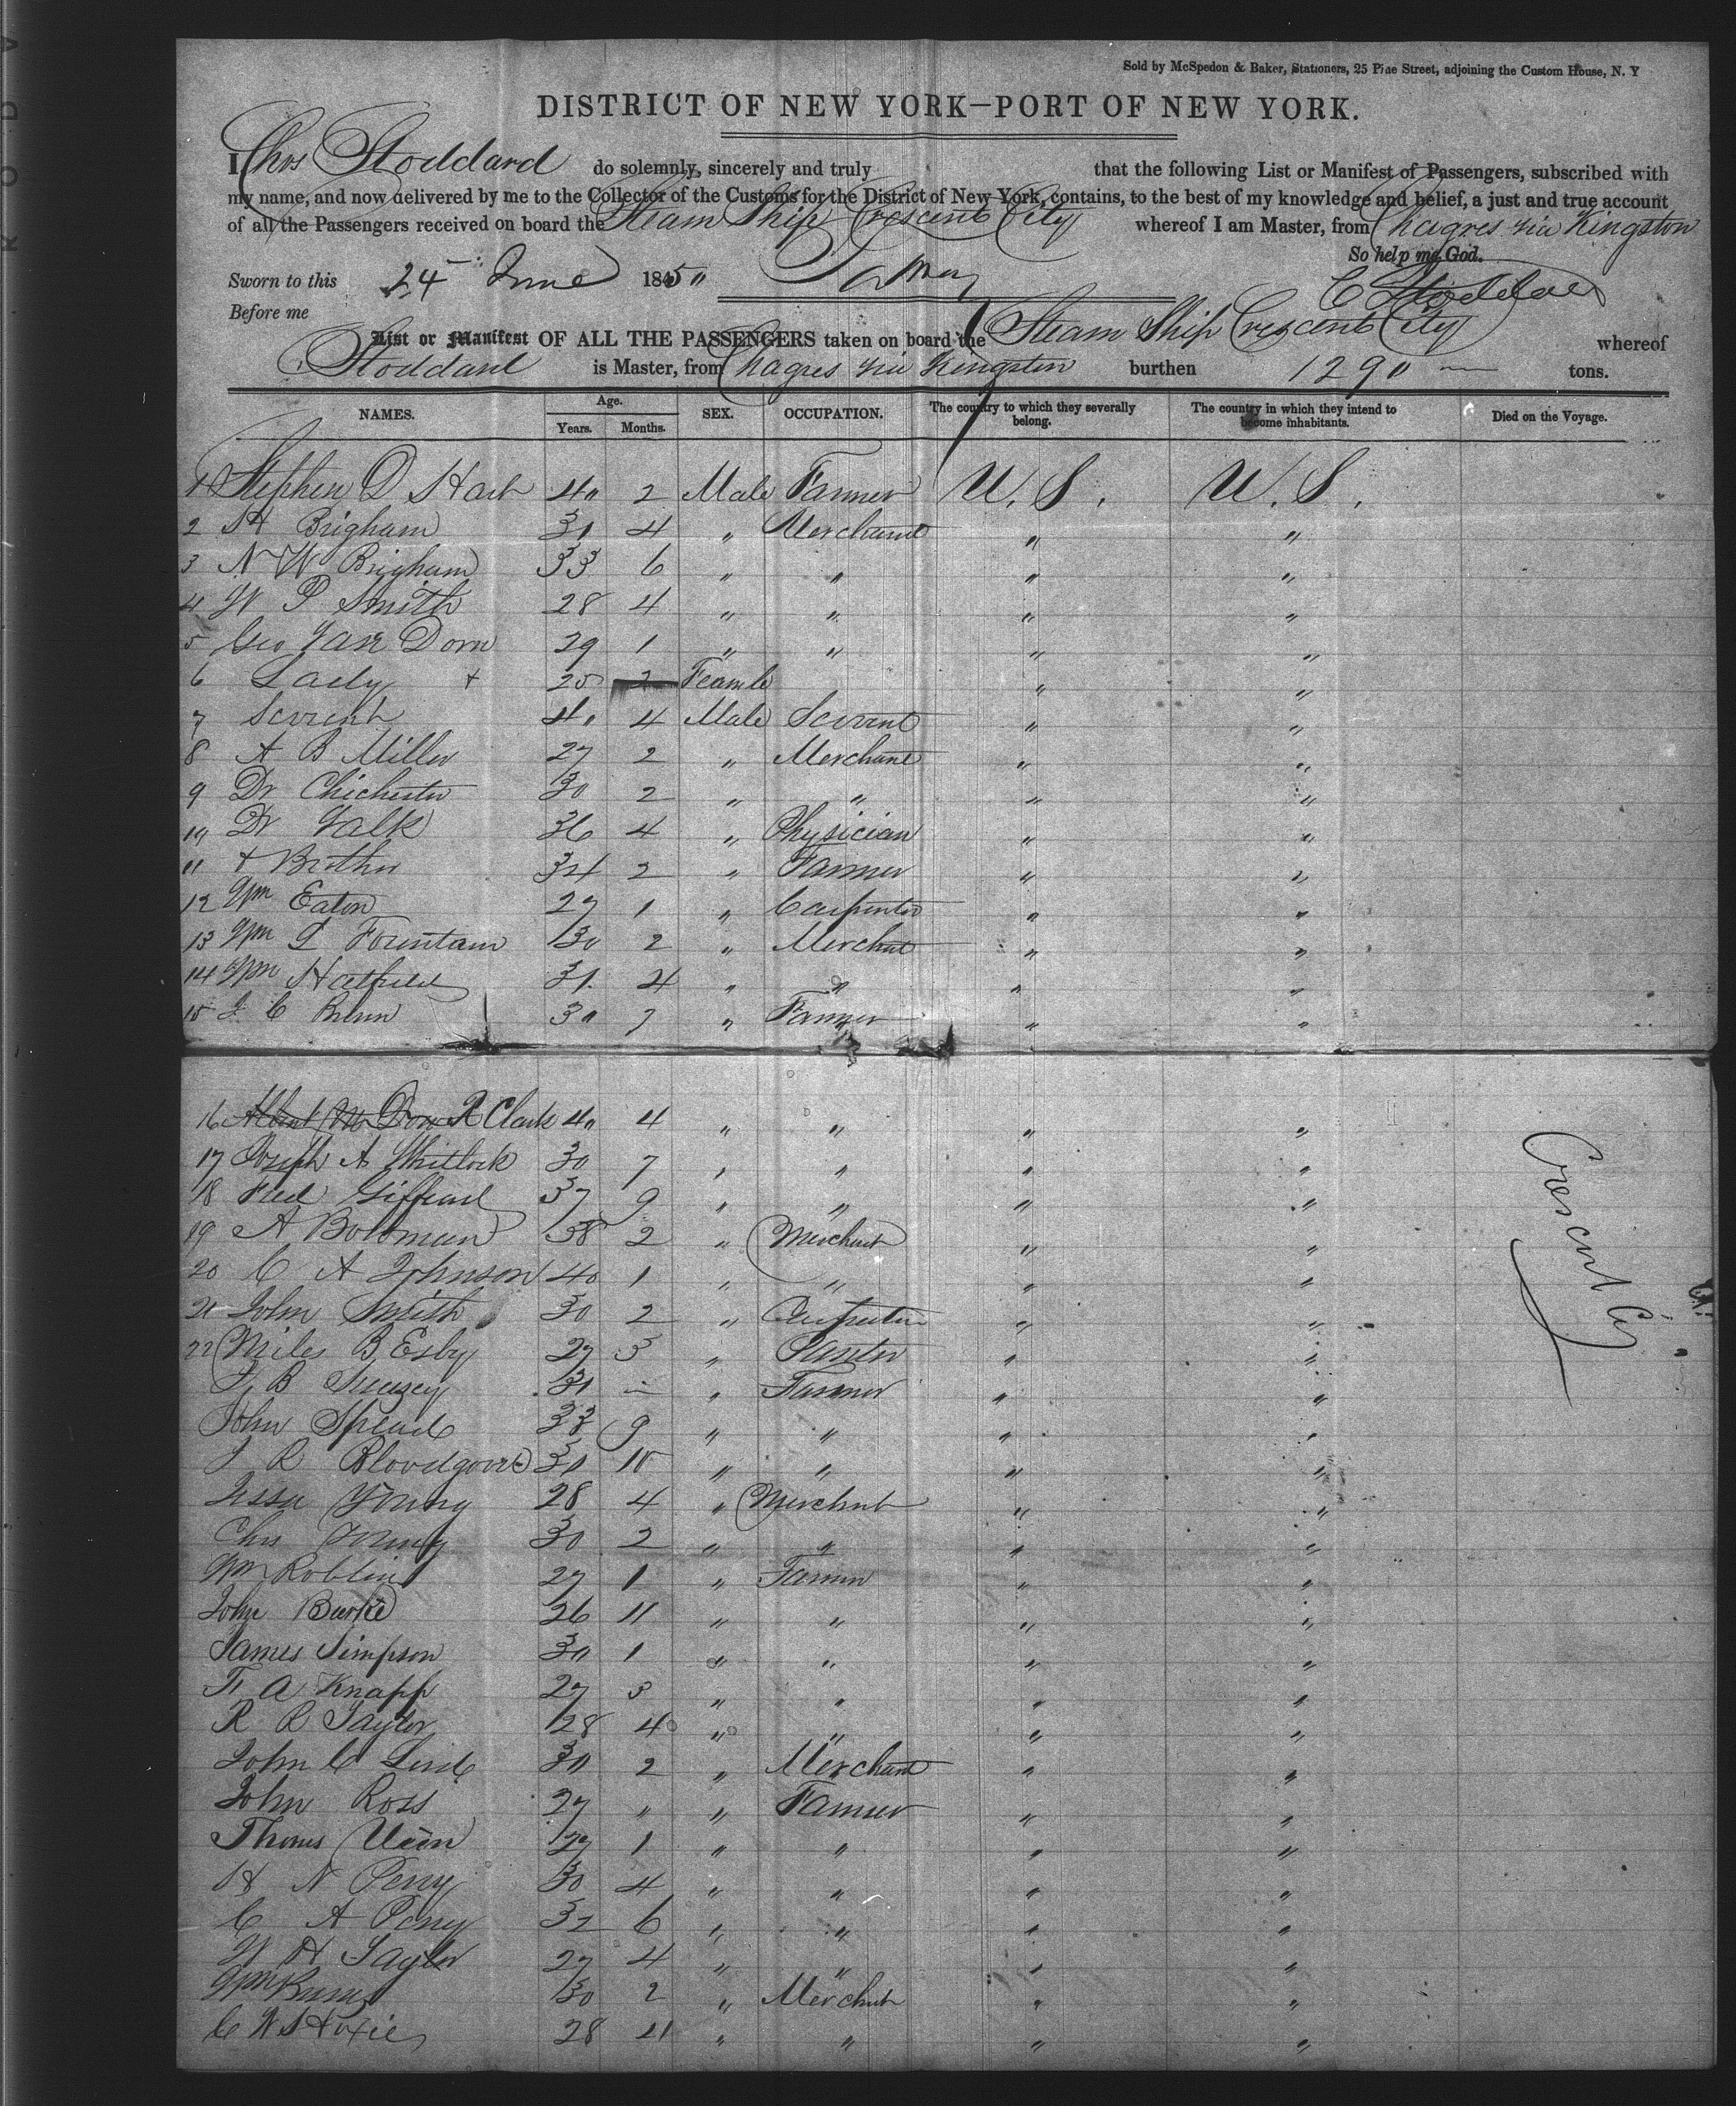 Sold by McSpedon & Baker, Stationers, 25 Pine Street, adjoining the Custom House, N. Y
DISTRICT OF NEW YORK—PORT OF NEW YORK.
I Chos Stoddard do solemnly, sincerely and truly that the following List or Manifest of Passengers, subscribed with
my name, and now delivered by me to the Collector of the Customs for the District of New York, contains, to the best of my knowledge and belief, a just and true account
of all the Passengers received on board the Steam Ship Crescent City whereof I am Master, from Chagres via Kingston
So help me God.
Sworn to this 24 June 1850
C Stoddard
Before me
List or Manifest OF ALL THE PASSENGERS taken on board the Steam Ship Crescent City whereof
Stoddard is Master, from Chagres via Kingston burthen 1290 tons.
NAMES. Age. Years. Months. SEX. OCCUPATION. The country to which they severally belong. The country in which they intend to become inhabitants. Died on the Voyage.
1 Stephen D Hart 40 2 Male Farmer U.S. U.S.
2 H Brigham 30 4 " Merchant " "
3 N W Brigham 33 6 " " " "
4 W P Smith 28 4 " " " "
5 Geo Van Dorn 29 1 " " " "
6 Lady + 20 2 Feamle " "
7 Servent 40 4 Male Servent " "
8 A B Miller 27 2 " Merchant " "
9 Dr Chichester 30 2 " " " "
10 Dr Valk 36 4 " Physician " "
11 + Brother 34 2 " Farmer " "
12 Wm Eaton 27 1 " Carpenter " "
13 Wm L Fountain 30 2 " Merchnt " "
14 Wm Hatfield 31 4 " " " "
15 J C 30 7 " Farmer " "
16 R Clark 40 4 " " " "
17 Joseph A Whitlock 30 7 " " " "
18 Fred Giffard 37 9 " " " "
19 A 38 2 " Merchnt " "
20 C A Johnson 40 1 " " " "
21 John Smith 30 2 " Carpenter " "
22 Miles B Esby 27 3 " " "
J B 30 – " Farmer " "
John 33 9 " " " "
J R Bloodgood 30 10 " " " "
Jesse Young 28 4 " Merchnt " "
Chs Young 30 2 " " " "
Wm Roblin 27 1 " Farmer " "
John Burke 26 11 " " " "
James Simpson 30 1 " " " "
F A Knapp 27 3 " " " "
R R Taylor 28 4 " " " "
John C 30 2 " Merchant " "
John Ross 27 " " Farmer " "
Thomas 27 1 " " " "
H N Perry 30 4 " " " "
C A Perry 32 6 " " " "
W H Taylor 27 4 " " " "
Wm 30 2 " Merchnt " "
C W Hoxie 28 11 " " " "
Crescent City